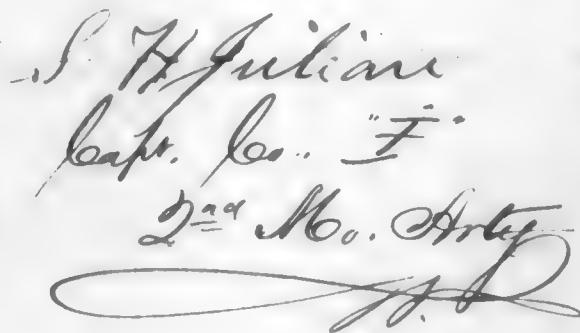 S. H. Julian
Capt. Co. "F"
2nd Mo. Arty